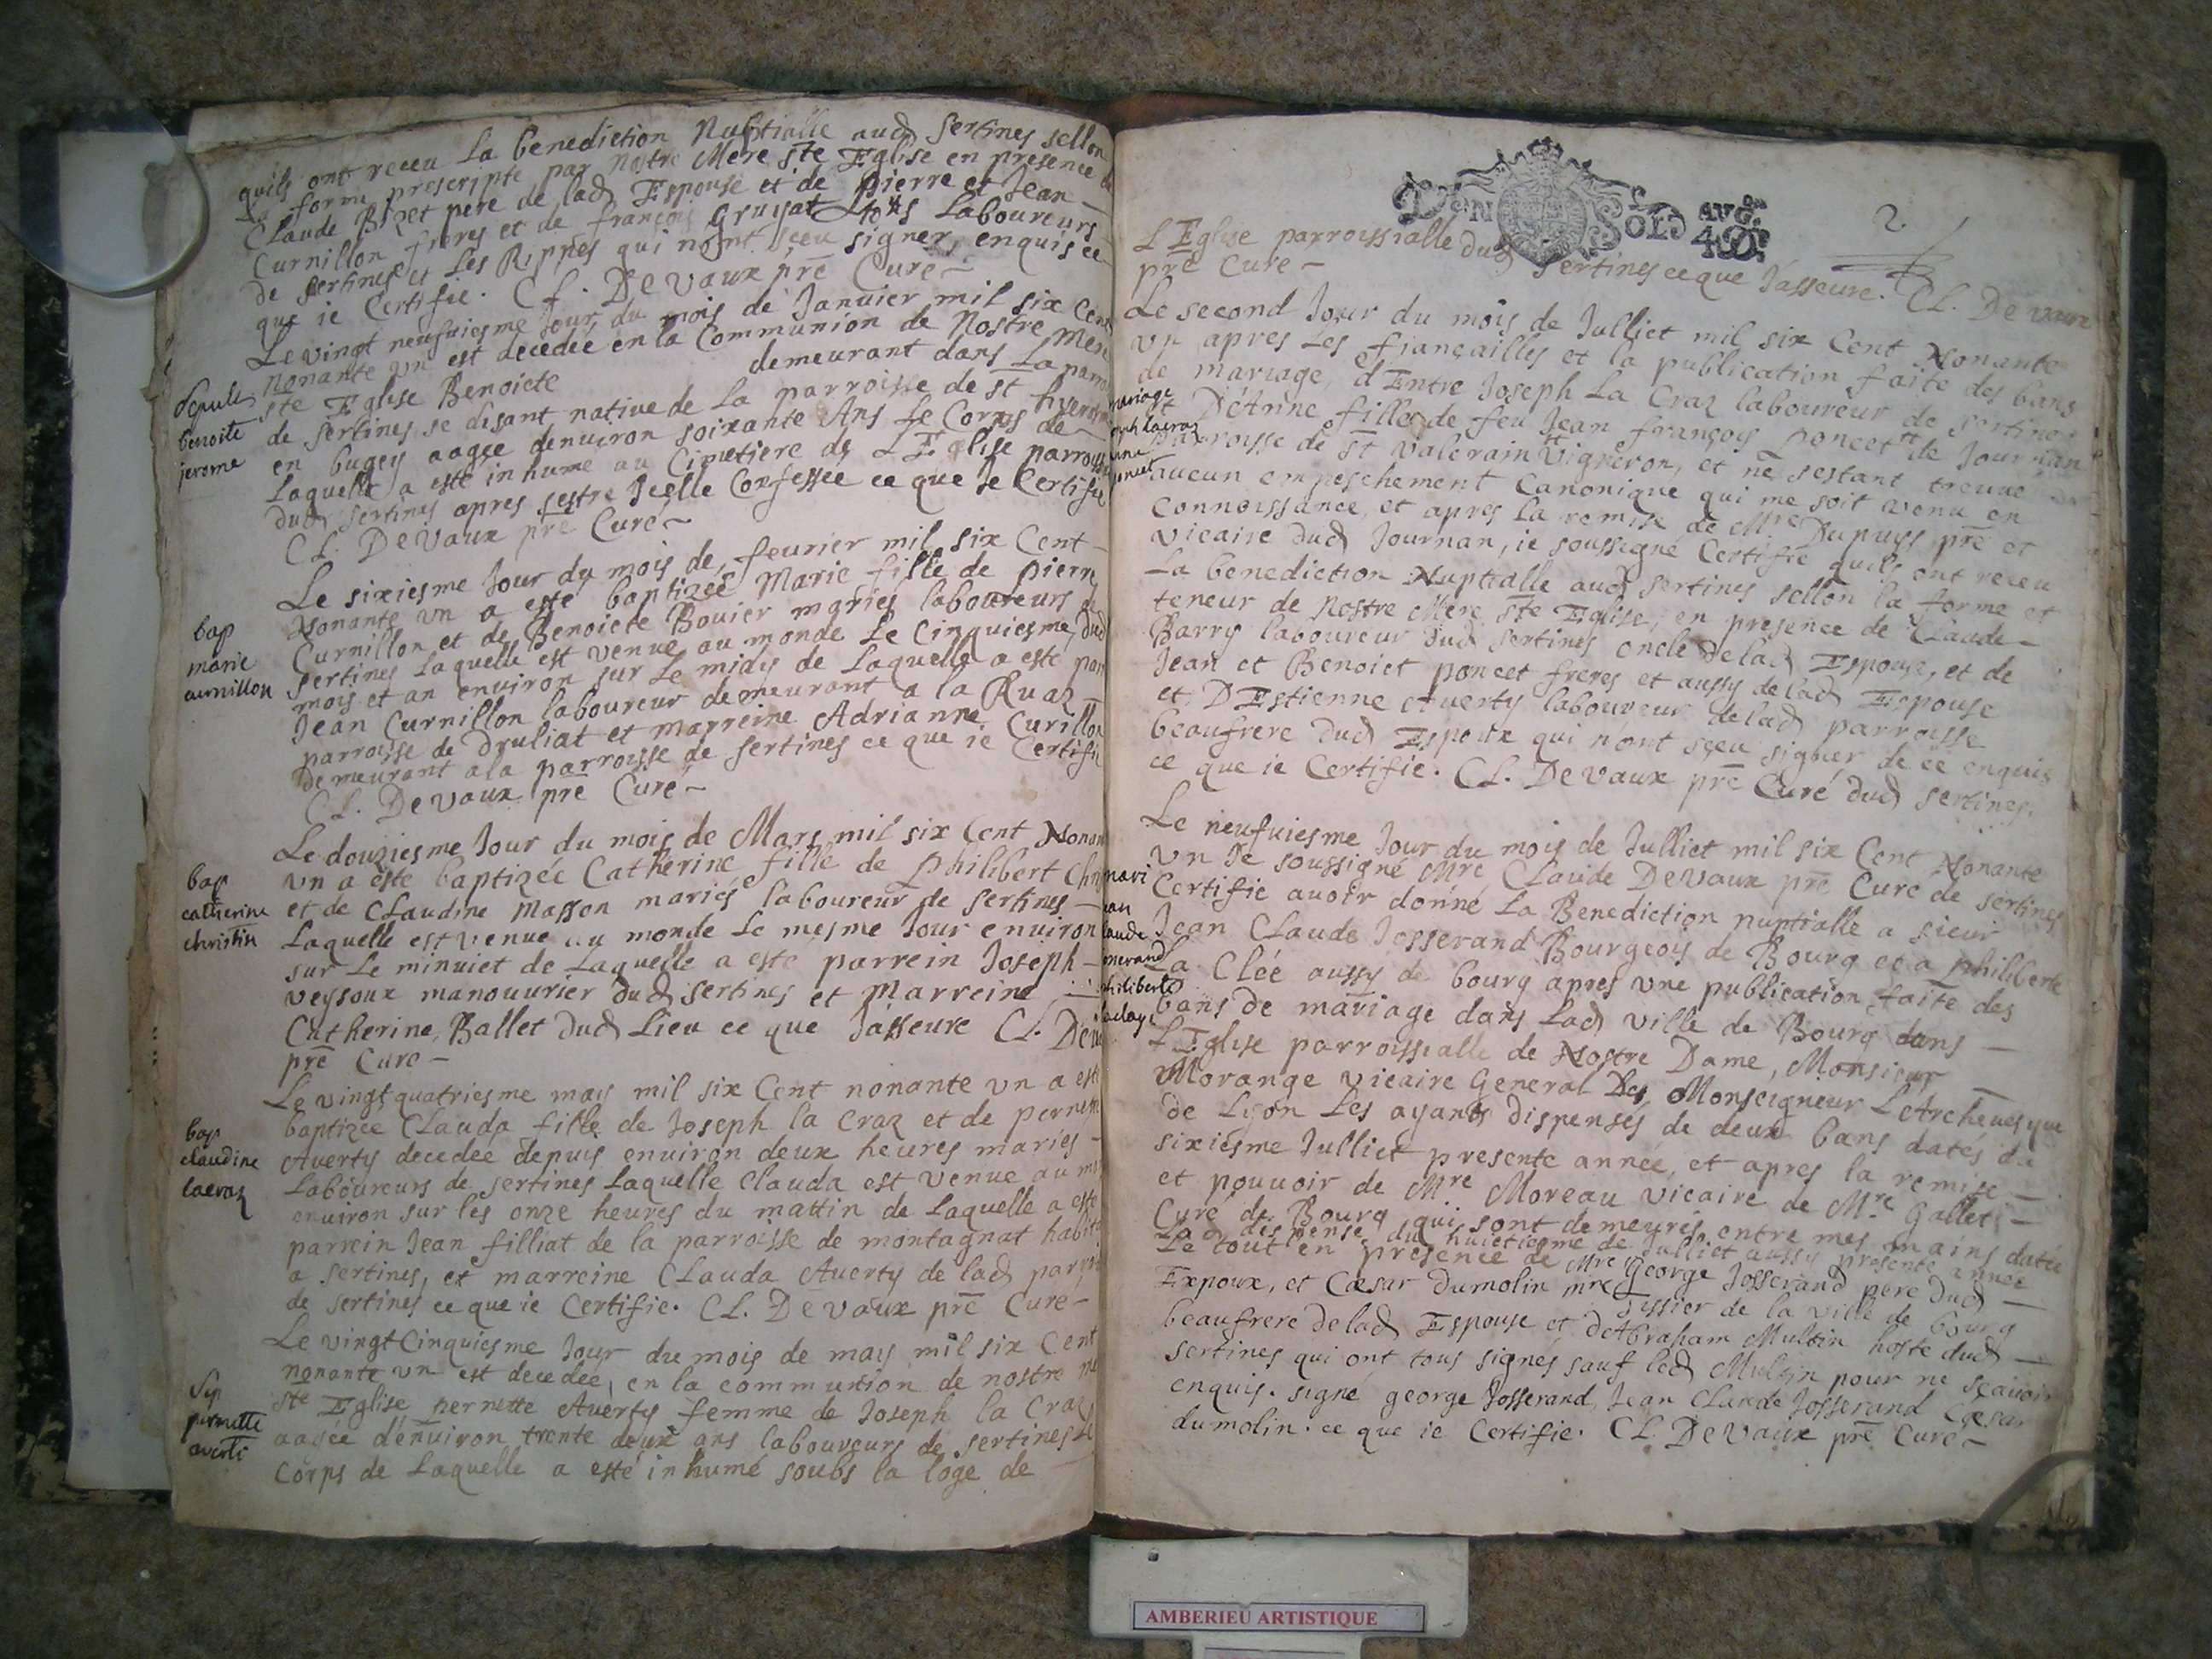 quils ont receu La benediction Nubtialle aud Sertines sellon
La forme prescripte par Nostre Mere Ste Eglise en presence de
Claude Bizet pere de lad Espouse et de pierre et Jean
Curnillon freres et de françois Gruyat Ttous Laboureurs
de Sertines et Les Rippes qui n'ont sceu signer enquis ce
que ie Certifie. Cl. De Vaux pre Curé
Le vingt neufuiesme Jour du mois de Januier mil six Cent
Nonante vn est decedée en la Communion de Nostre Mere
ste Eglise Benoiete demeurant dans La parro
de Sertines se disant natiue de La parroisse de St
en bugey aagée denuiron soixante Ans Le Corps de
Laquelle a esté inhumé au Cimetiere de L'Eglise parroiss
dud Sertines apres sestre Jcelle Confessée ce que Je Certifie
CL. De Vaux pre Curé
sepult
benoite
jerome
Le sixiesme Jour du mois de feurier mil six Cent
Nonante vn a esté baptizée Marie fille de pierre
Curnillon et de Benoiete Bouier mariés laboureurs de
Sertines Laquelle est venue au monde Le Cinquiesme dud
mois et an enuiron sur Le midy de Laquelle a esté parr
Jean Curnillon laboureur demeurant a la Ruaz
parroisse de Druliat et marreine Adrianne Curillon
Demeurant a la parroisse de Sertines ce que ie Certifie
CL. De Vaux pre Curé
bap
marie
curnillon
Le douziesme Jour du mois de Mars mil six Cent Nonan
vn a esté baptizée Catherine fille de philibert Chri
et de CLaudine Masson mariés laboureur de Sertines
Laquelle est venue au monde Le mesme Jour enuiron
sur Le minuiet de Laquelle a esté parrein Joseph
veysoux manouurier dud Sertines et Marreine
Catherine Ballet dud Lieu ce que Jasseure CL. Deva
pre Curé
bap
catherine
christin
Le vingt quatriesme may mil six Cent nonante vn a esté
baptizée CLauda fille de Joseph la Craz et de pernette
Auerty decedée depuis enuiron deux heures mariés
Laboureurs de Sertines Laquelle Clauda est venue au mo
enuiron sur les onze heures du mattin de Laquelle a esté
parrein Jean filliat de la parroisse de montagnat habita
a Sertines, et marreine CLauda Auerty de lad parroi
de Sertines ce que ie Certifie. CL. De Vaux pre Curé
bap
claudine
lacraz
Le vingt Cinquiesme Jour du mois de may mil six Cent
nonante vn est decedée, en la communion de nostre me
ste Eglise pernette Auerty femme de Joseph la Craz
aagée denuiron trente deux ans laboureurs de Sertines Le
Corps de Laquelle a esté inhumé soubs la loge de
Sep
pernette
averti
De N Sold AVG.on 4.D.
2.
L'Eglise parroissialle dud Sertines ce que Jasseure. CL. De Vaux
pre Curé
Le second Jour du mois de Julliet mil six Cent Nonante
vn apres Les fiançailles et la publication faite des bans
de mariage, d'Entre Joseph La Craz laboureur de Sertines
et D'Anne fille de feu Jean françois poncet de Journan
parroisse de St Valerain Vigneron, et ne sestant treuué
aucun empeschement Canonique qui me soit venu en
Connoissance, et apres La remise de Mre Dupuys pre et
vicaire dud Journan, ie soussigné Certifie quils ont receu
La benediction Nuptialle aud Sertines sellon la forme et
teneur de Nostre Mere Ste Eglise, en presence de CLaude
Barry laboureur dud Sertines oncle de lad Espouse, et de
Jean et Benoiet poncet freres et aussy de lad Espouse
et D'Estienne Auerty laboureur de lad parroisse
beaufrere dud Espoux qui n'ont sçeu signer de ce enquis
ce que ie Certifie. CL. De Vaux pre Curé dud Sertines.
mariage
Le neufuiesme Jour du mois de Julliet mil six Cent Nonante
vn Je soussigné Mre CLaude De Vaux pre Curé de Sertines
Certifie auoir donné La Benediction nuptialle a sieur
Jean CLaude Josserand Bourgeois de Bourg et a philiberte
La Clée aussy de bourg apres vne publication faite des
bans de mariage dans Lad ville de Bourg dans
L'Eglise parroissialle de Nostre Dame, Monsieur
Morange vicaire General De Monseigneur L'Archeuesque
de Lyon Les ayants dispensés de deux bans datés du
sixiesme Julliet presente année, et apres la remise
et pouuoir de Mre Moreau vicaire de Mre Gallet
Curé de Bourg qui sont demeurés entre mes mains datée
Lad dispense du huictiesme de Julliet aussy presente année
Le tout en presence de Mre George Josserand pere dud
Expoux, et Cæsar dumolin mre Tissier de la ville de bourg
beaufrere de lad Espouse et d'Abraham Multin hoste dud
Sertines qui ont tous signés sauf led Multin pour ne sçauoir
enquis. signé george Josserand, Jean CLaude Josserand Cæsar
dumolin. ce que ie Certifie. CL. De Vaux pre Curé
AMBERIEU ARTISTIQUE